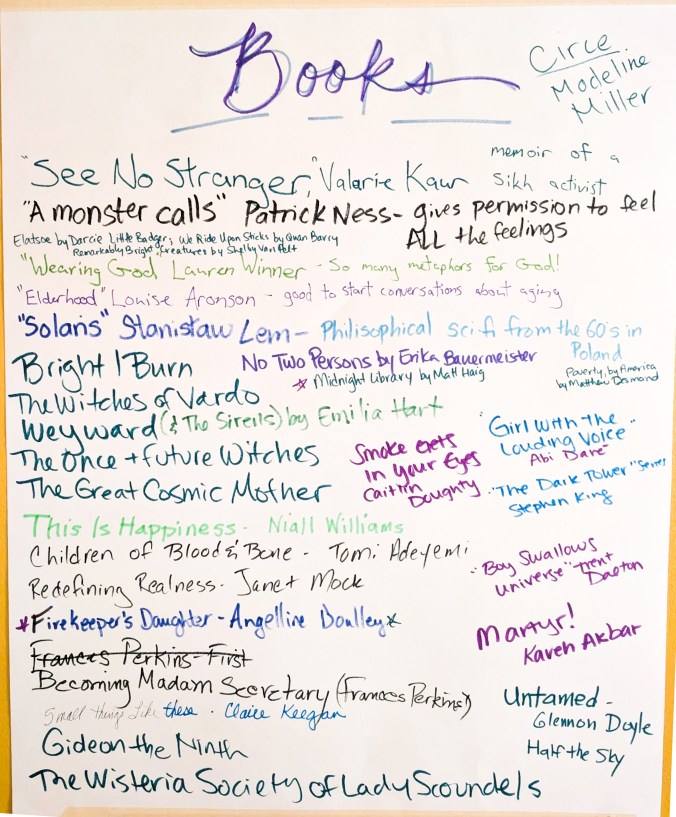 Books
Circe
Modeline
Miller
"See No Stranger," Valarie Kaur
memoir of a
Sikh activist
"A monster calls" Patrick Ness - gives permission to feel
ALL the feelings
Elatsoe by Darcie Little Badger; We Ride Upon Sticks by Quan Barry
Remarkably Bright Creatures by Shelby Van Pelt
"Wearing God Lauren Winner - So many metaphors for God!
"Elderhood" Louise Aronson - good to start conversations about aging
"Solaris" Stanisław Lem - Philisophical sci fi from the 60's in
Poland
Bright I Burn
No Two Persons by Erika Bauermeister
* Midnight Library by Matt Haig
Poverty, by America
by Matthew Desmond
The Witches of Vardo
Weyward (& The Sirens) by Emilia Hart
The Once + future Witches
The Great Cosmic Mother
Smoke Gets
In Your Eyes
Caitlin
Doughty
"Girl With The
Louding Voice"
Abi Dare
"The Dark Tower" series
Stephen King
This Is Happiness - Niall Williams
Children of Blood & Bone - Tomi Adeyemi
Redefining Realness - Janet Mock
"Boy Swallows
Universe" Trent
Dalton
*Firekeeper's Daughter - Angelline Boulley*
Martyr!
Kaveh Akbar
Frances Perkins - First
Becoming Madam Secretary (Frances Perkins)
Small things like these - Claire Keegan
Untamed -
Glennon Doyle
Half the Sky
Gideon the Ninth
The Wisteria Society of Lady Scoundels